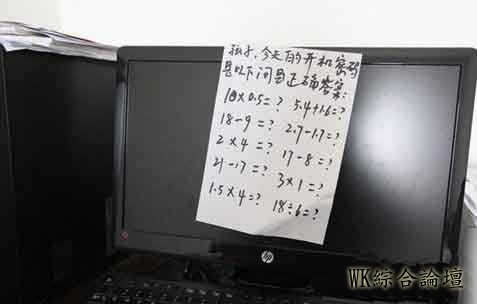 孩子,今天的开机密码
是以下问题正确答案:
10×0.5=? 5.4+1.6=?
18-9=? 2.7-1.7=?
2×4=? 17-8=?
21-17=? 3×1=?
1.5×4=? 18÷6=?
hp
WK綜合論壇